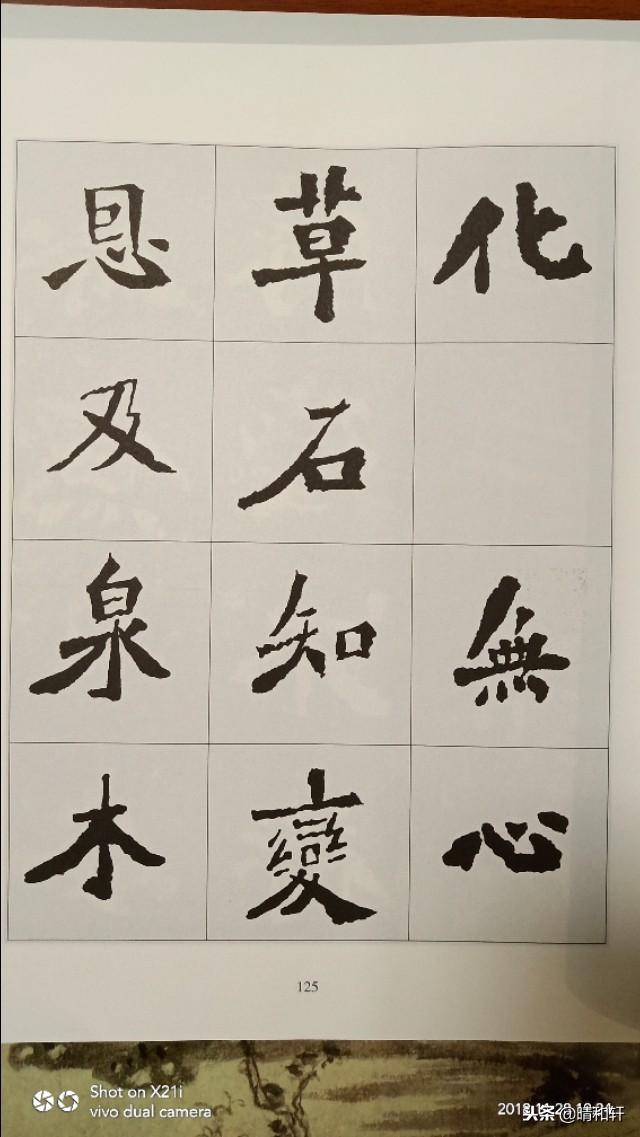 化
無心
草石知變
恩及泉木
125
Shot on X21i
vivo dual camera
头条@晴和轩